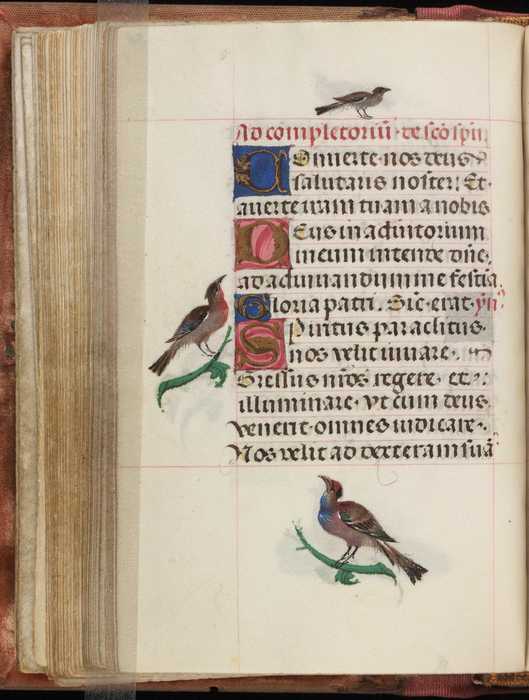 Ad completoriũ · de scõ spũ
Conuerte nos deus
salutaris noster: Et
auerte iram tuam a nobis
Deus in adiutorium
meum intende dñe
ad adiuuandum me festina
Gloria patri. Sic̃ erat. yñ
Spiritus paraclitus
nos velit iuuare ·
Gressus nr̃os regere · et
illuminare · vt cum deus
venerit · omnes iudicare ·
Nos velit ad dexteram suã